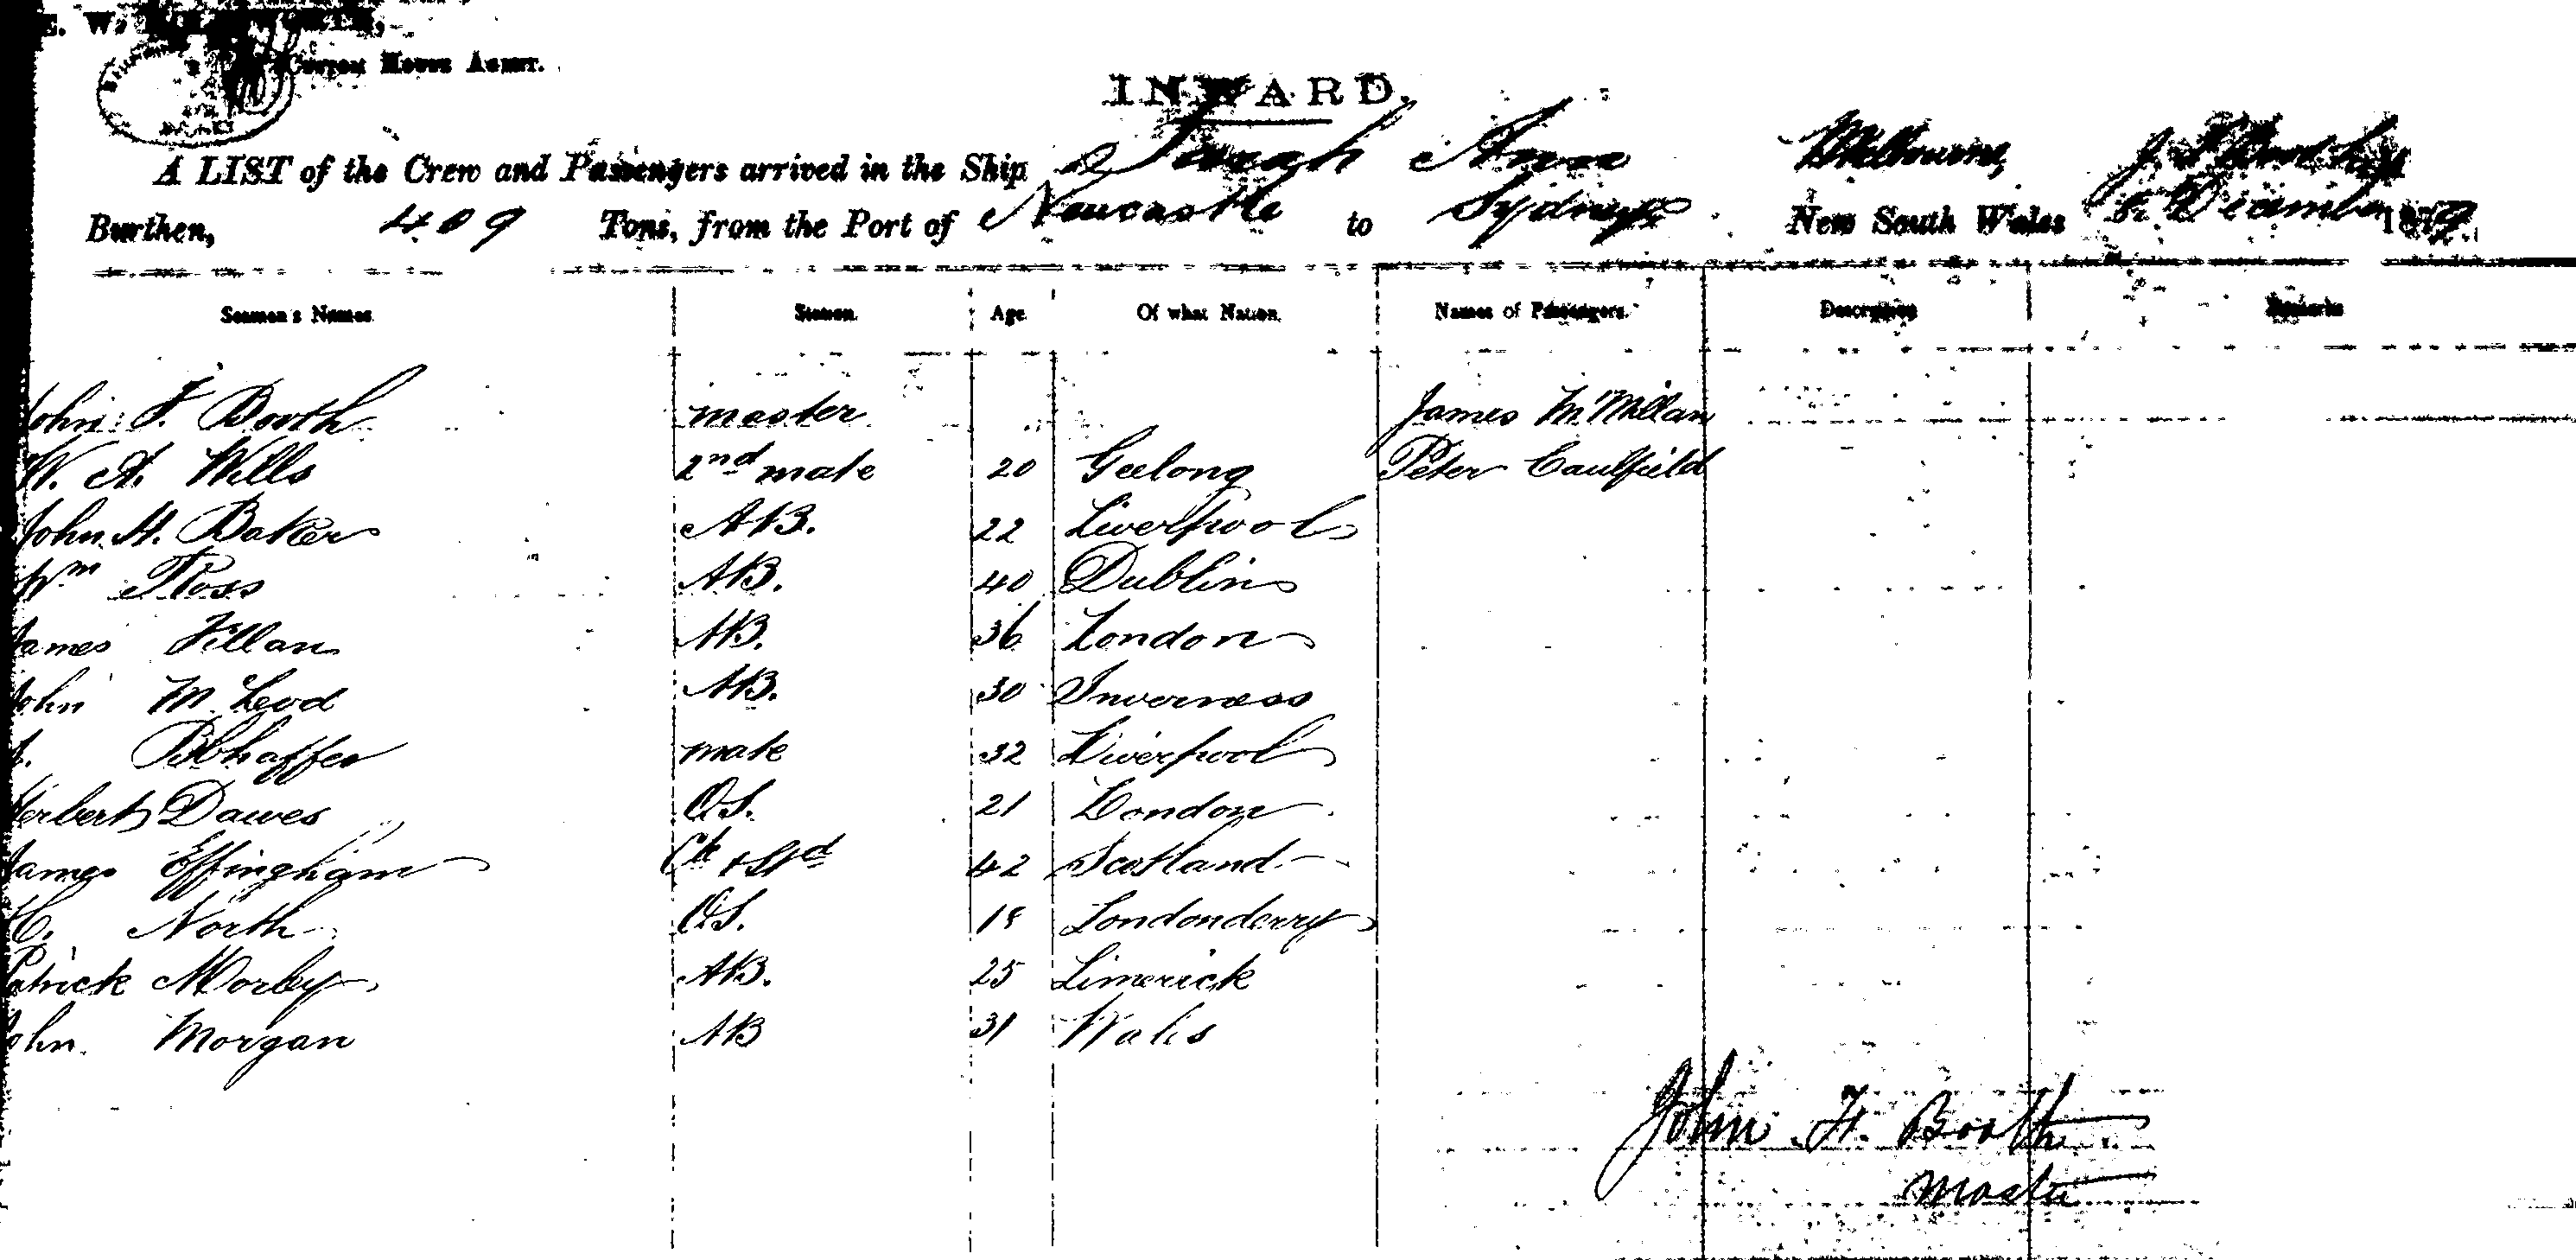 Custom House Agent.
INWARD.
A LIST of the Crew and Passengers arrived in the Ship Sarah Ann Melbourne,
Burthen, 409 Tons, from the Port of Newcastle to Sydney New South Wales December 1879
Seamen's Names Station Age Of what Nation Names of Passengers. Description Remarks
John F. Booth master James McMillan
W. A. Wills 2nd mate 20 Geelong Peter Caulfield
John H. Baker AB. 22 Liverpool
Wm Ross AB. 40 Dublin
James Fillan AB. 36 London
John McLeod AB. 30 Inverness
mate 32 Liverpool
Herbert Dawes O.S. 21 London
James Effingham Ck & Std 42 Scotland
North O.S. 18 Londonderry
Patrick Morby AB. 25 Limerick
John Morgan AB 31 Wales
John F. Booth
Master